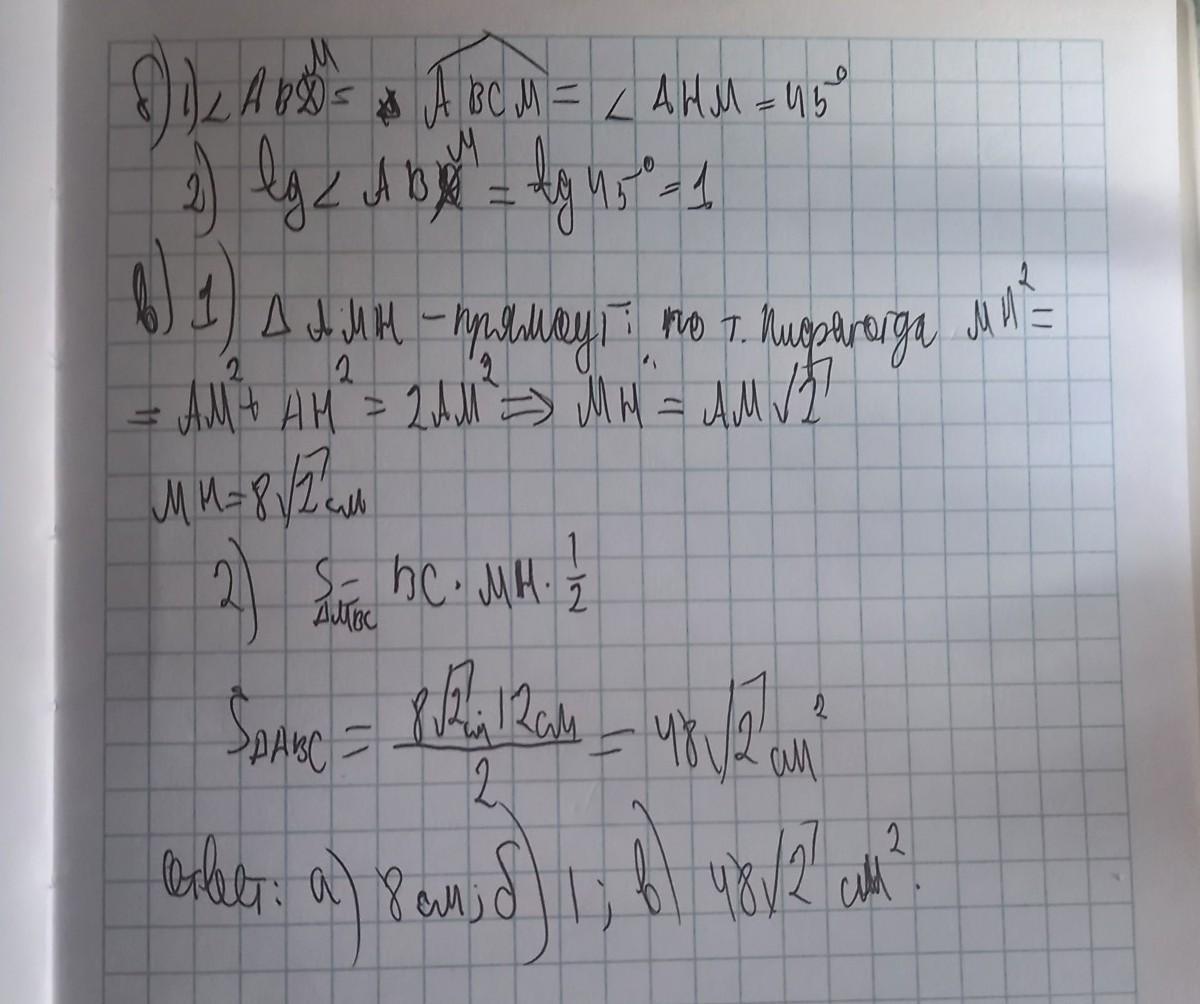 б) 1) ∠ABM = ABCM = ∠AHM = 45°
2) tg∠ABM = tg45° = 1
в) 1) ΔAMH - прямоуг; по т. Пифагогда MH² =
= AM² + AH² = 2AM² ⇒ MH = AM√2
MH = 8√2 см
2) S ΔMBC = BC · MH · 1/2
SΔABC = 8√2 см · 12 см / 2 = 48√2 см²
Ответ: а) 8 см; б) 1; в) 48√2 см².